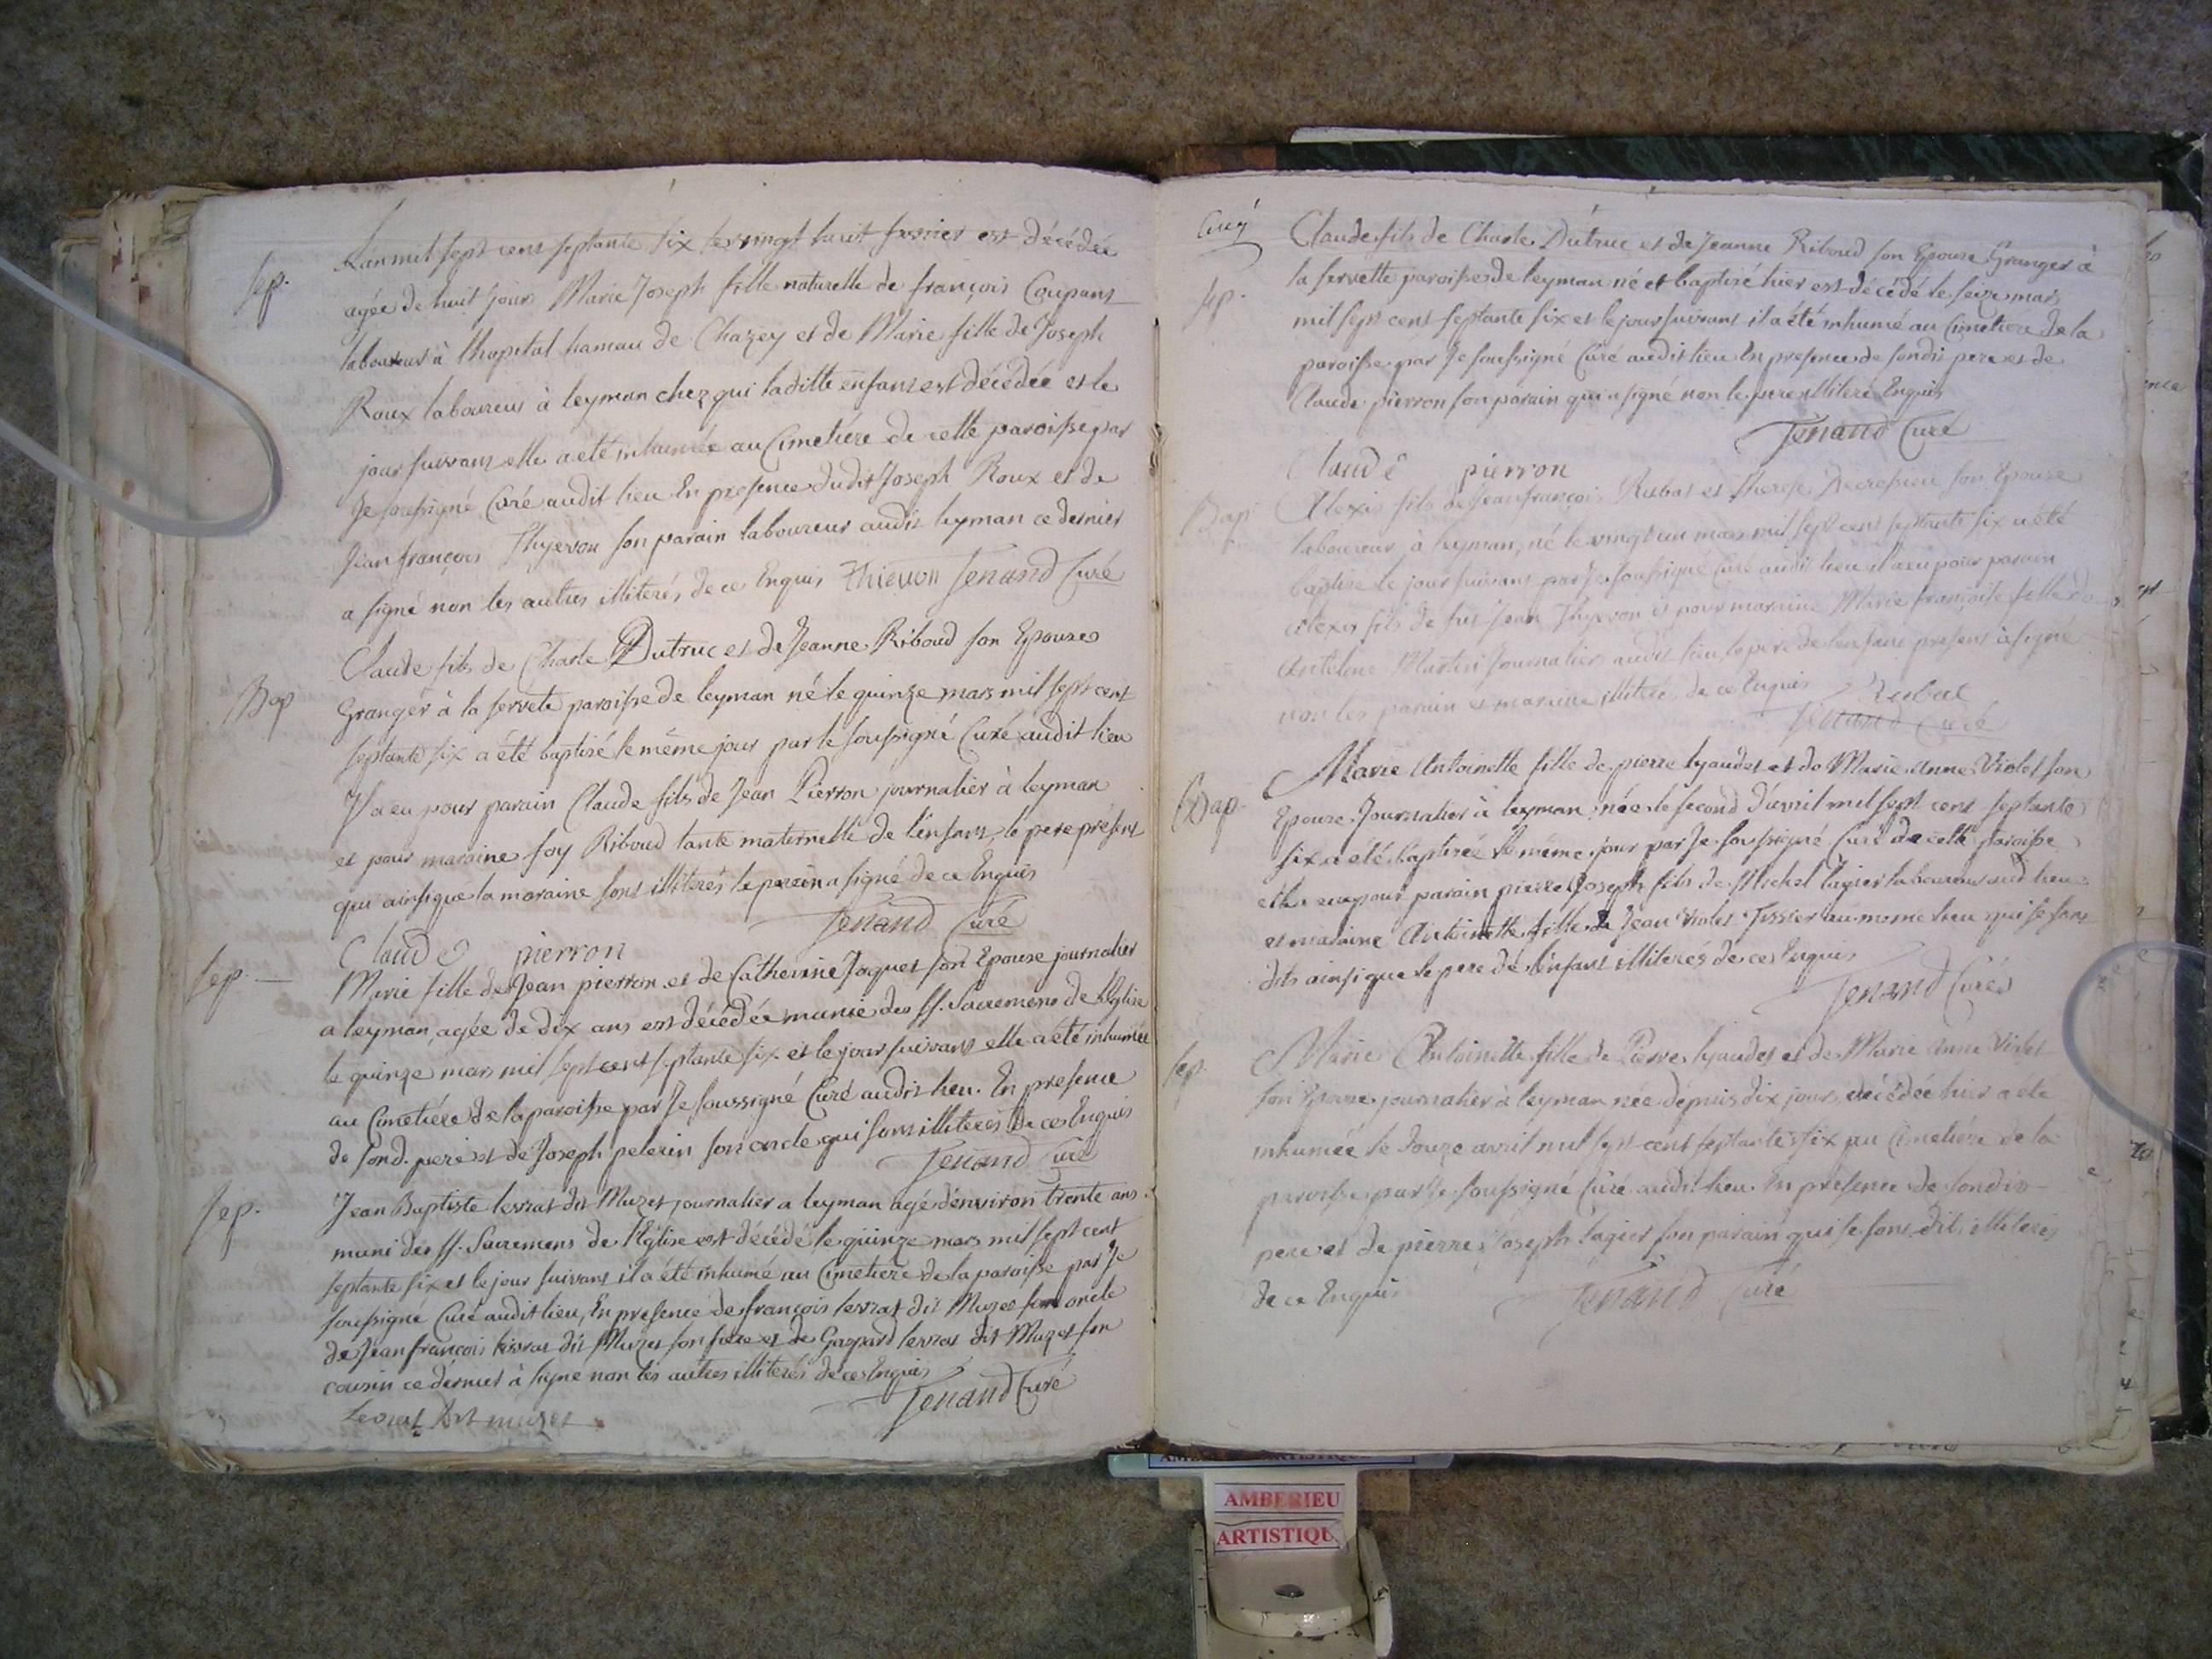 Sep.
L'an mil sept cent septante six le vingt huit fevrier est décédée
agée de huit jours Marie Joseph fille naturelle de françois Coupant
laboureur à lhopital hameau de Chazey et de Marie fille de Joseph
Roux laboureur à leyman chez qui laditte enfant est décédée et le
jour suivant elle a eté inhumée au Cimetiere de cette paroisse par
Je soussigné Curé audit lieu En presence dudit Joseph Roux et de
Jean françois Thyevon son parain laboureur audit leyman ce dernier
a signé non les autres illiterés de ce Enquis Thievon Tenand Curé
Bap
Claude fils de Charle Dutruc et de Jeanne Riboud son Epouse
Granger à la servete paroisse de leyman né le quinze mars mil sept cent
septante six a été baptisé le même jour par le soussigné Curé audit lieu
Il a eu pour parain Claude fils de Jean Pierron journalier à leyman
et pour maraine foy Riboud tante maternelle de l'enfant, le pere présent
qui ainsi que la maraine sont illiterés le parain a signé de ce Enquis
Tenand Curé
Claude pierron
Sep.
Marie fille de Jean pierron et de Catherine Joquet son Epouse journalier
a leyman, agée de dix ans est décédée munie des SS. Sacremens de l'Eglise
le quinze mars mil sept cent septante six et le jour suivant elle a été inhumée
au Cimetiére de la paroisse par Je soussigné Curé audit lieu. En presence
de sond. pere et de Joseph pelerin son oncle qui sont illiterés de ce Enquis
Tenand Curé
Sep.
Jean Baptiste levrat dit Muzet journalier a leyman agé d'environ trente ans
muni des SS. Sacremens de l'Eglise est décédé le quinze mars mil sept cent
septante six et le jour suivant il a été inhumé au Cimetiere de la paroisse par Je
soussigné Curé audit lieu, En presence de françois levrat dit Muzet son oncle
de Jean françois levrat dit Muzet son frere et de Gaspard levrat dit Muzet son
cousin ce dernier à signé non les autres illiterés de ce Enquis
Tenand Curé
Levrat dit muzet
Sep.
Claude fils de Charle Dutruc et de Jeanne Riboud son Epouse Granger à
la servette paroisse de leyman né et baptisé hier est décédé le seize mars
mil sept cent septante six et le jour suivant il a été inhumé au Cimetiere de la
paroisse par Je soussigné Curé audit lieu En presence de sondit pere et de
Claude pierron son parain qui a signé non le pere illiteré Enquis
Tenand Curé
Claude pierron
Bap
Alexis fils de Jean françois Rubat et Therese son Epouse
laboureur à leyman, né le vingt un mars mil sept cent septante six a été
baptisé le jour suivant par Je soussigné Curé audit lieu il a eu pour parain
alexis fils de feu Jean Thyevon et pour maraine Marie françoise fille de
Antelme Martin Journalier audit lieu, le pere de l'enfant present à signé
non les parain et maraine illiterés de ce Enquis Rubat
Tenand Curé
Bap.
Marie Antoinette fille de pierre lyaudet et de Marie Anne Violet son
Epouse Journalier à leyman née le second d'avril mil sept cent septante
six a été baptisée le même jour par Je soussigné Curé de cette paroisse
elle a eu pour parain pierre Joseph fils de Michel lagier laboureur aud. lieu
et maraine Antoinette fille de Jean Violet Tissier au meme lieu qui se sont
dits ainsi que le pere de l'enfant illiterés de ce Enquis
Tenand Curé
Sep.
Marie Antoinette fille de Pierre lyaudet et de Marie Anne Violet
son Epouse journalier à leyman née depuis dix jours, décédée hier a été
inhumée le douze avril mil sept cent septante six au Cimetiére de la
paroisse par Je soussigné Curé audit lieu En presence de sondit
pere et de pierre Joseph lagier son parain qui se sont dit illiterés
de ce Enquis
Tenand Curé
AMBERIEU
ARTISTIQUE